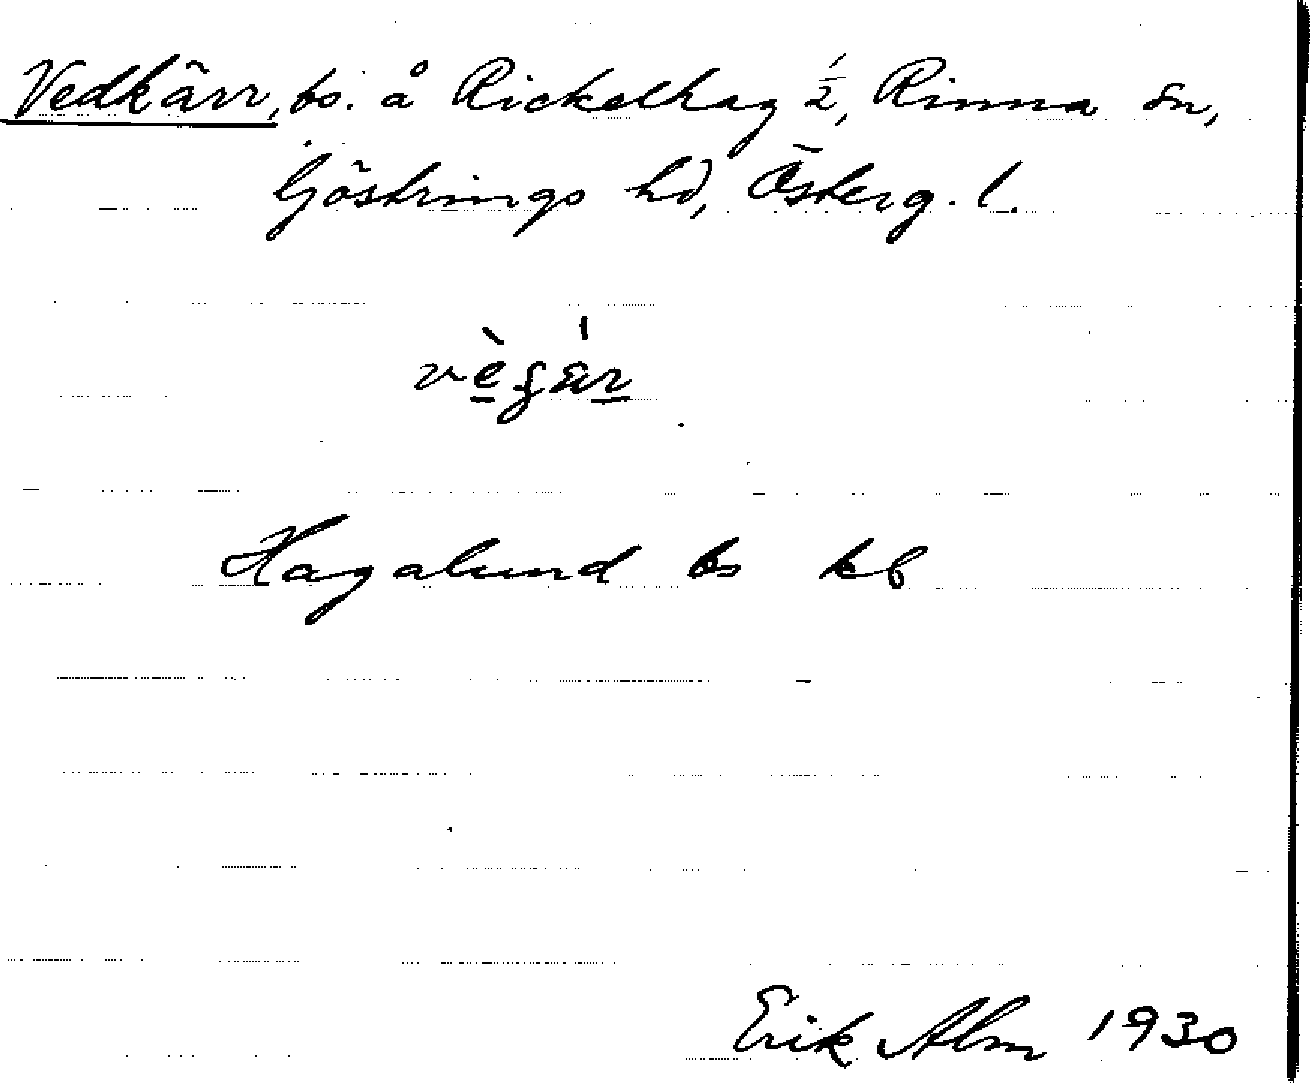 Vedkärr, bs. å Rickelhag 1/2, Rinna sn,
Göstrings hd, Österg. l.
Hagalund bs kb
Erik Alm 1930